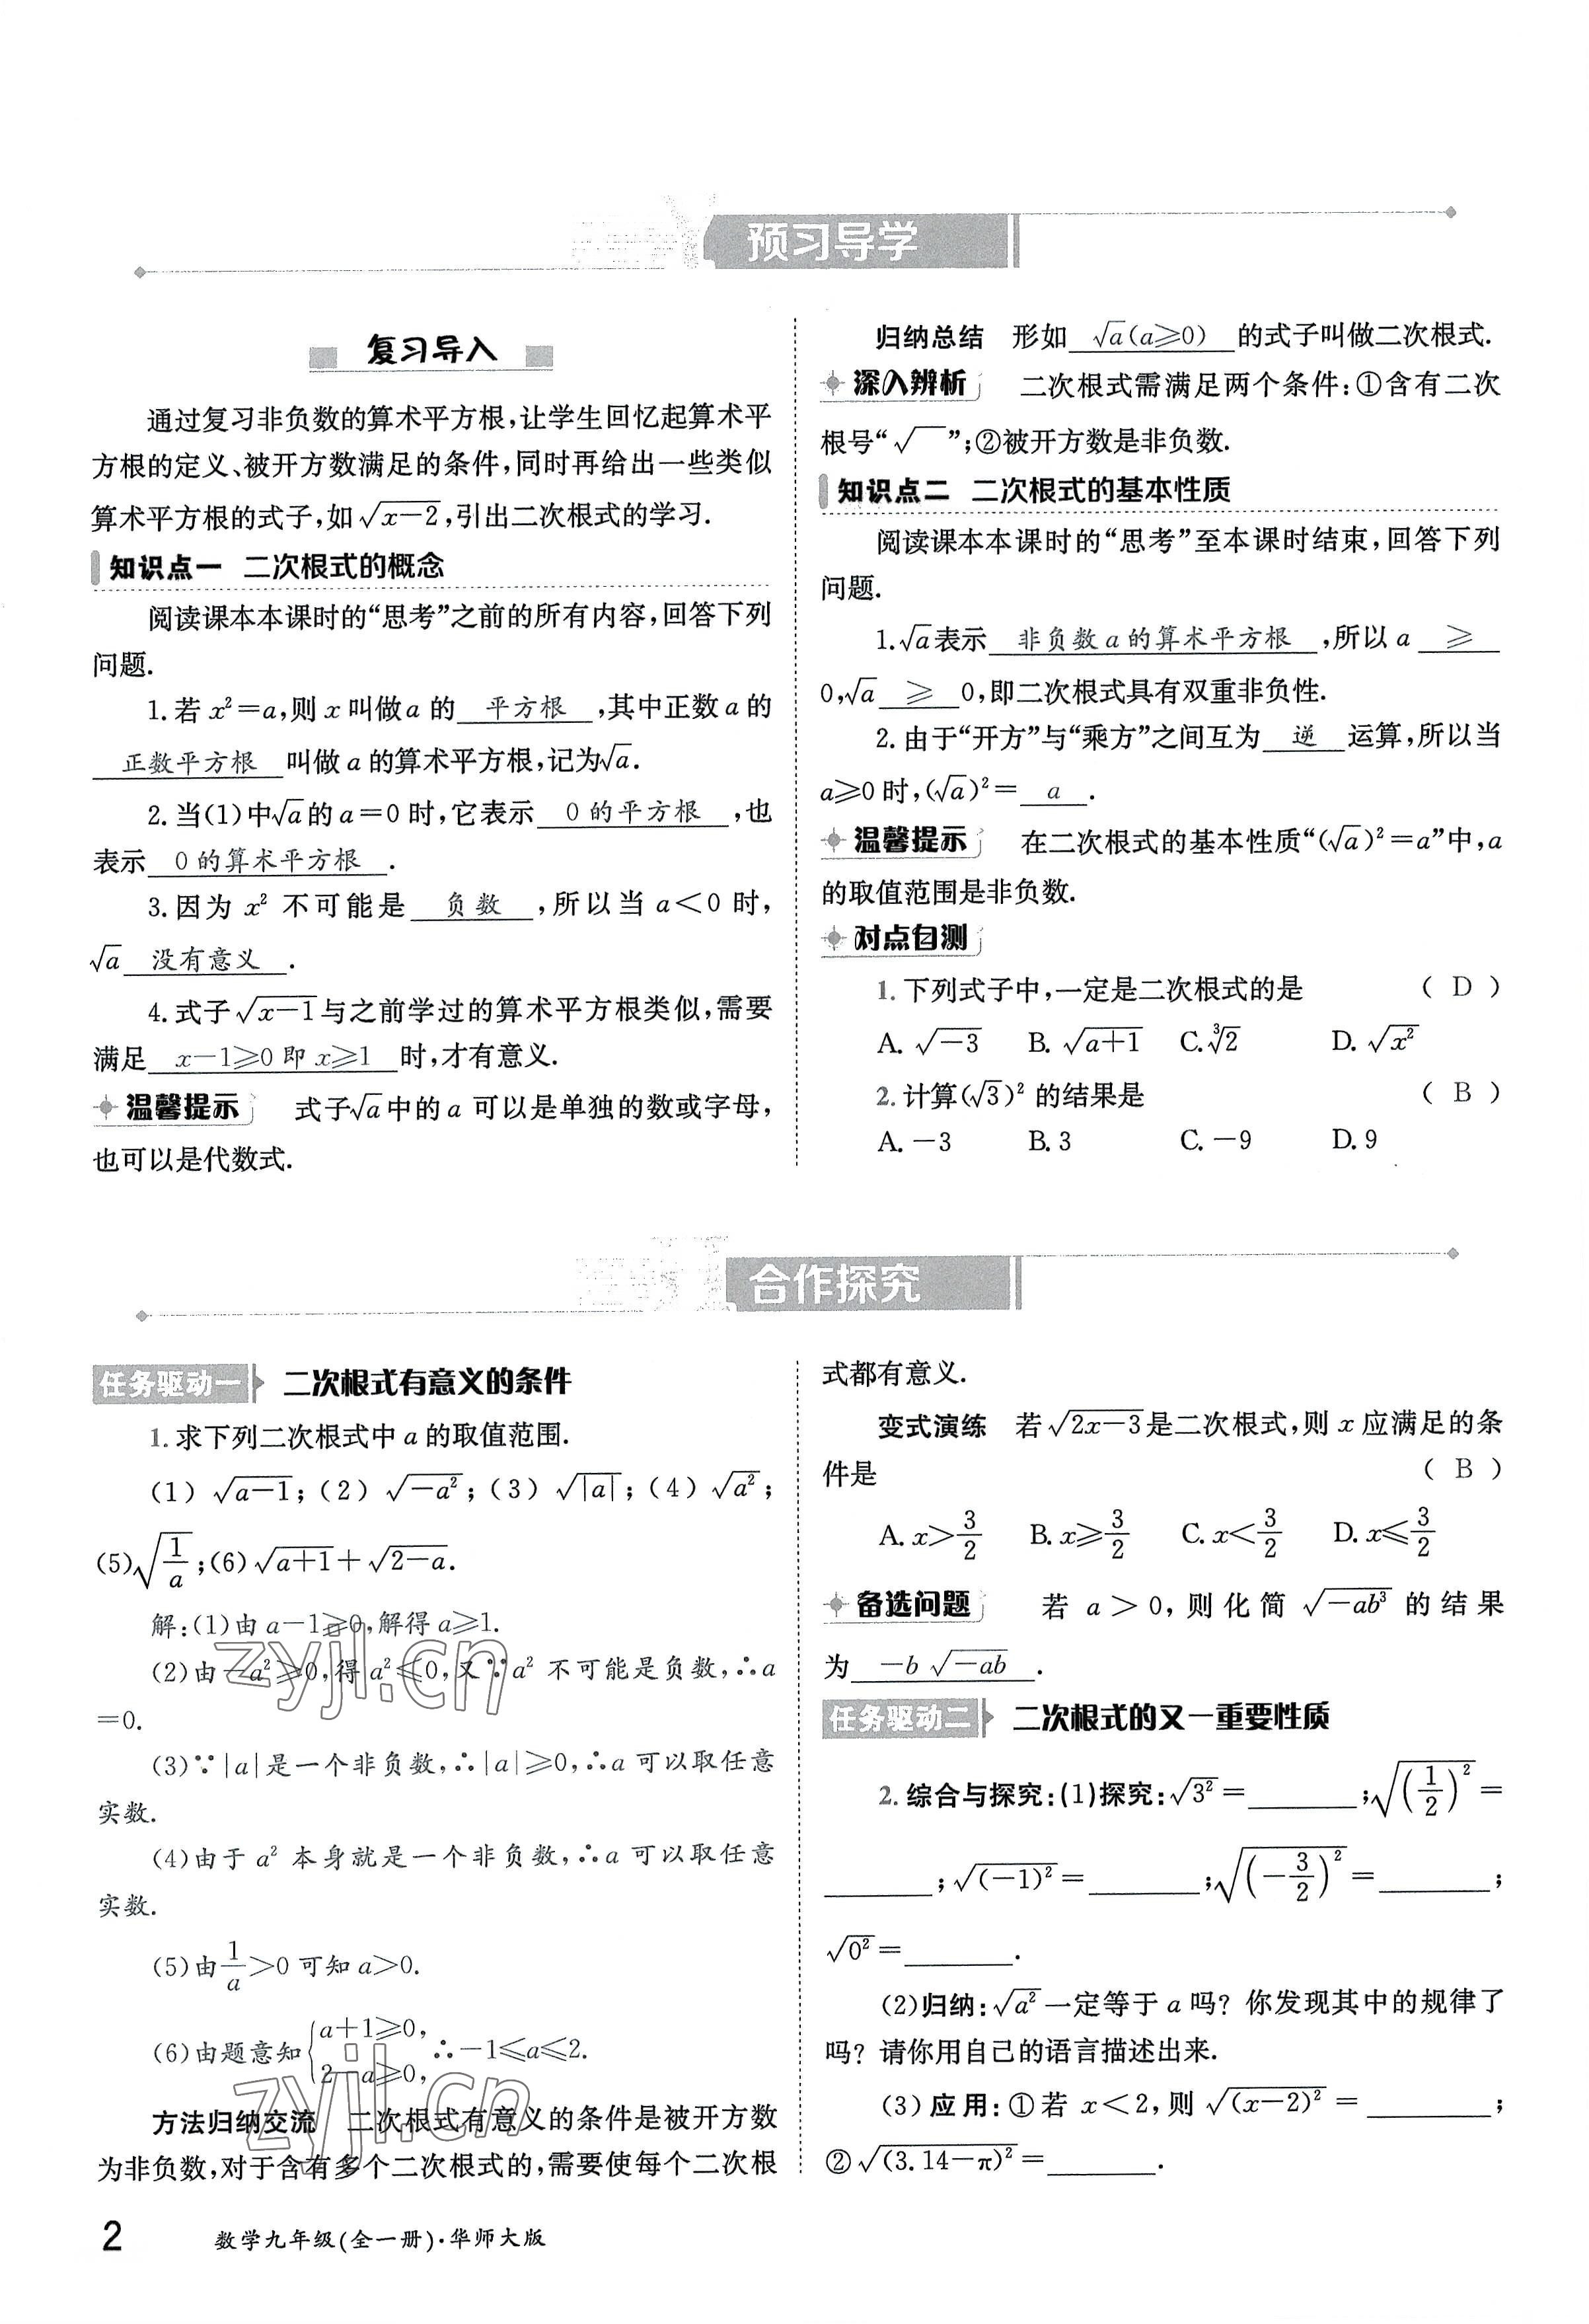 预习导学
复习导入
通过复习非负数的算术平方根,让学生回忆起算术平
方根的定义、被开方数满足的条件,同时再给出一些类似
算术平方根的式子,如√(x−2),引出二次根式的学习.
知识点一 二次根式的概念
阅读课本本课时的“思考”之前的所有内容,回答下列
问题.
1.若 x²=a,则 x 叫做 a 的 平方根 ,其中正数 a 的
正数平方根 叫做 a 的算术平方根,记为√a.
2.当(1)中√a的 a=0 时,它表示 0 的平方根 ,也
表示 0 的算术平方根 .
3.因为 x² 不可能是 负数 ,所以当 a<0 时,
√a 没有意义 .
4.式子√(x−1)与之前学过的算术平方根类似,需要
满足 x−1⩾0 即 x⩾1 时,才有意义.
温馨提示 式子√a中的 a 可以是单独的数或字母,
也可以是代数式.
归纳总结 形如 √a(a⩾0) 的式子叫做二次根式.
深入辨析 二次根式需满足两个条件:①含有二次
根号“√ ”;②被开方数是非负数.
知识点二 二次根式的基本性质
阅读课本本课时的“思考”至本课时结束,回答下列
问题.
1.√a表示 非负数 a 的算术平方根 ,所以 a ⩾
0,√a ⩾ 0,即二次根式具有双重非负性.
2.由于“开方”与“乘方”之间互为 逆 运算,所以当
a⩾0 时,(√a)²= a .
温馨提示 在二次根式的基本性质“(√a)²=a”中,a
的取值范围是非负数.
对点自测
1.下列式子中,一定是二次根式的是 ( D )
A.√(−3) B.√(a+1) C.∛2 D.√(x²)
2.计算(√3)² 的结果是 ( B )
A.−3 B.3 C.−9 D.9
合作探究
任务驱动一 二次根式有意义的条件
1.求下列二次根式中 a 的取值范围.
(1) √(a−1); (2) √(−a²); (3) √|a|; (4) √(a²);
(5)√(1/a);(6)√(a+1)+√(2−a).
解:(1)由 a−1⩾0,解得 a⩾1.
(2)由−a²⩾0,得 a²⩽0,又∵a² 不可能是负数,∴a
=0.
(3)∵|a|是一个非负数,∴|a|⩾0,∴a 可以取任意
实数.
(4)由于 a² 本身就是一个非负数,∴a 可以取任意
实数.
(5)由1/a>0 可知 a>0.
(6)由题意知{a+1⩾0, 2−a⩾0, ∴−1⩽a⩽2.
方法归纳交流 二次根式有意义的条件是被开方数
为非负数,对于含有多个二次根式的,需要使每个二次根
式都有意义.
变式演练 若√(2x−3)是二次根式,则 x 应满足的条
件是 ( B )
A.x>3/2 B.x⩾3/2 C.x<3/2 D.x⩽3/2
备选问题 若 a>0,则化简 √(−ab³) 的结果
为 −b√(−ab) .
任务驱动二 二次根式的又一重要性质
2.综合与探究:(1)探究:√(3²)=______;√((1/2)²)=
______;√((−1)²)=______;√((−3/2)²)=______;
√(0²)=______.
(2)归纳:√(a²)一定等于 a 吗? 你发现其中的规律了
吗? 请你用自己的语言描述出来.
(3)应用:①若 x<2,则 √((x−2)²)=______;
②√((3.14−π)²)=______.
zyjl.cn
zyjl.cn
2 数学九年级(全一册)·华师大版